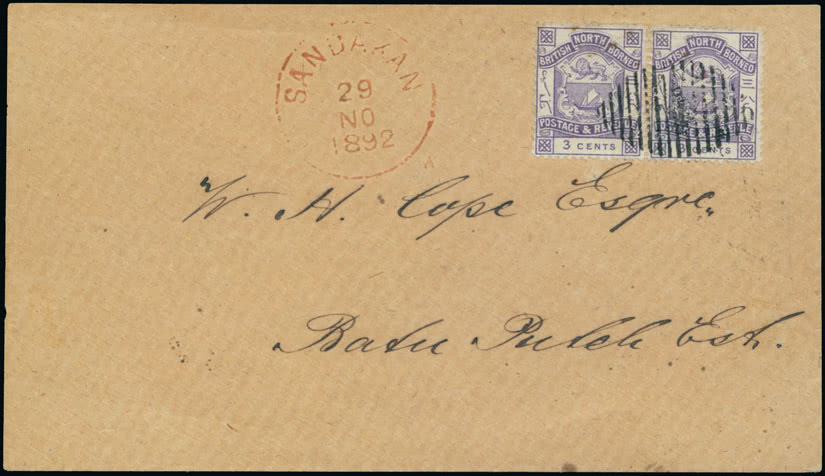 SANDAKAN
29
NO
1892
BRITISH NORTH BORNEO
POSTAGE & REVENUE
3 CENTS
BRITISH NORTH BORNEO
三
POSTAGE & REVENUE
CENTS
W. H. Cope Esqre
Batu Puteh Est.